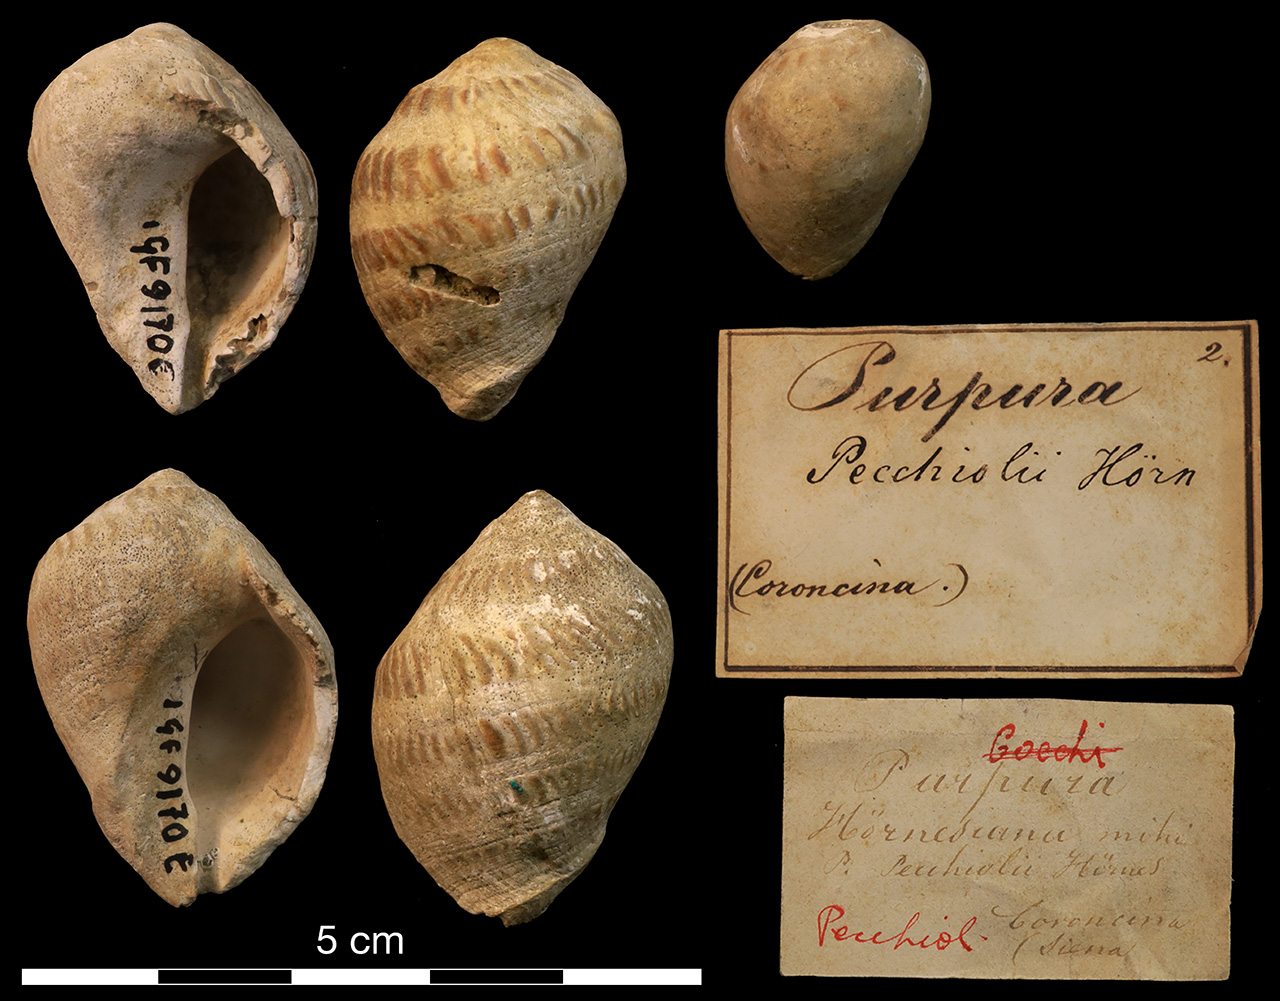 IGF9170E
IGF9170E
5 cm
2.
Purpura
Pecchiolii Hörn
(Coroncina.)
Cocchi
Purpura
Hörnesiana mihi
P. Pecchiolii Hörnes
Pecchiol
Coroncina
(Siena